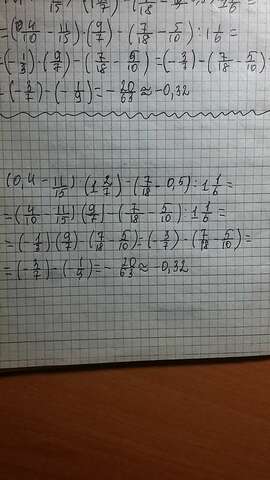 15) (7) (18 2)) 1 6
=(4/10 - 11/15)·(9/7) - (7/18 - 5/10) : 1 1/6 =
=(-1/3)·(9/7) - (7/18 - 5/10) = (-3/7) - (7/18 - 5/10)
(-3/7) - (-1/9) = -20/63 ≈ -0,32
(0,4 - 11/15) : (1 2/7) - (7/18 - 0,5) : 1 1/6 =
=(4/10 - 11/15)(9/7) - (7/18 - 5/10) : 1 1/6 =
=(-1/3)(9/7) - (7/18 - 5/10) = (-3/7) - (7/18 - 5/10) =
=(-3/7) - (-1/9) = -20/63 ≈ -0,32